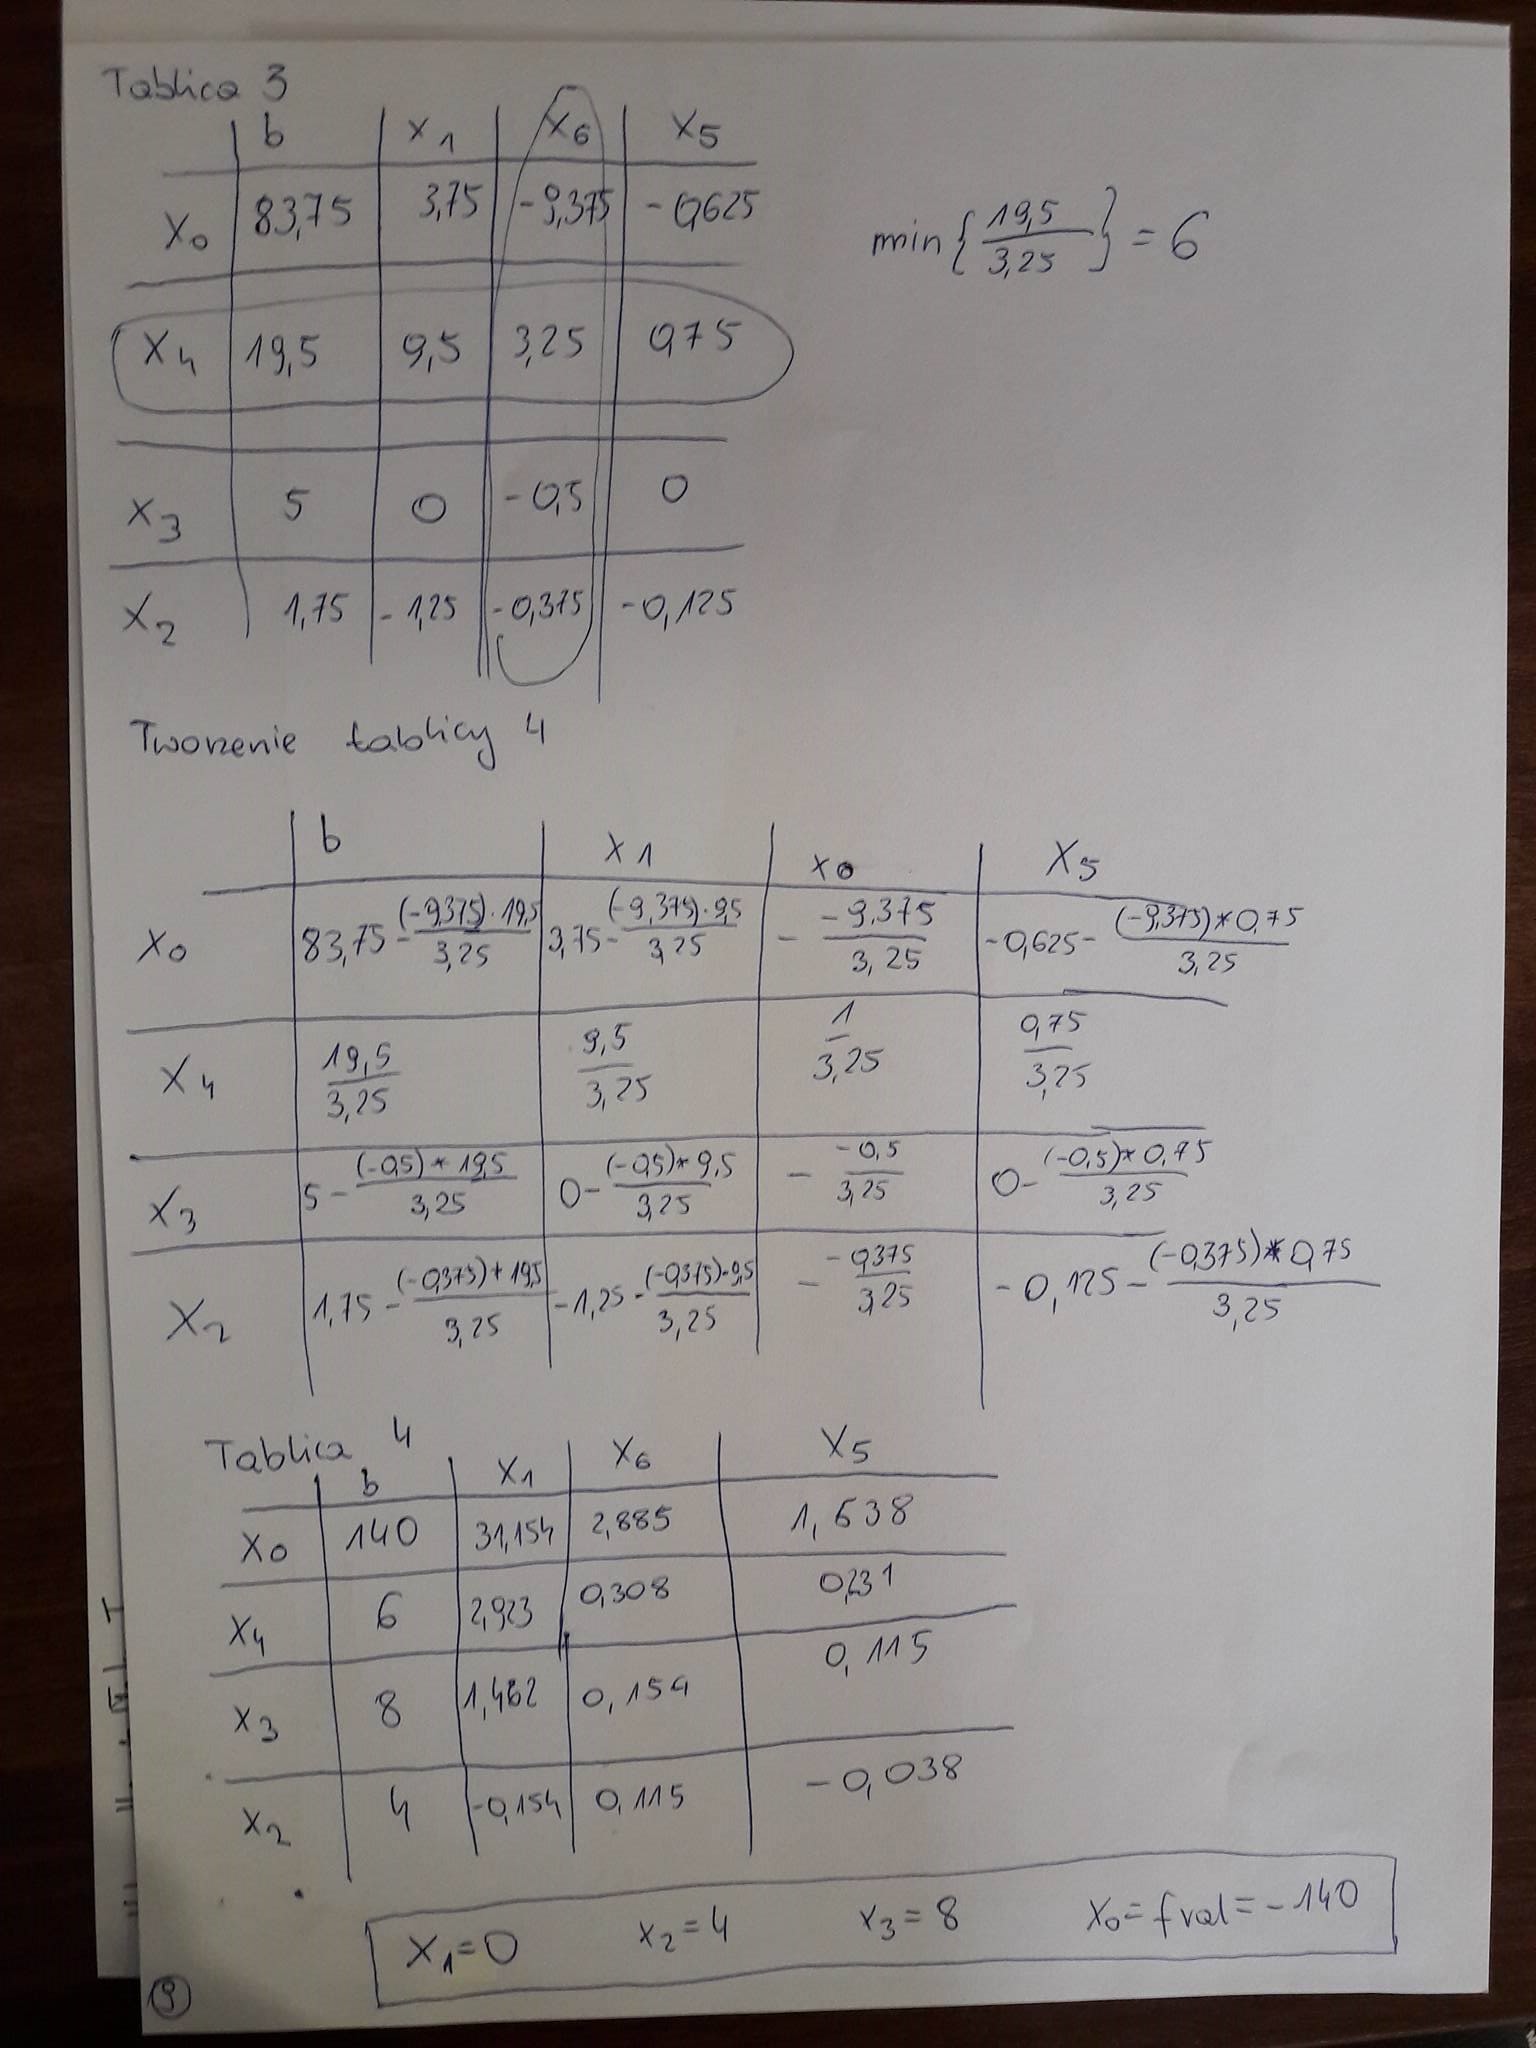 Tablica 3
b x1 x6 x5
x0 83,75 3,75 -9,375 -0,625
min{19,5/3,25} = 6
x4 19,5 9,5 3,25 0,75
x3 5 0 -0,5 0
x2 1,75 -1,25 -0,375 -0,125
Tworzenie tablicy 4
b x1 x0 x5
x0 83,75-(-9,375)·19,5/3,25 3,75-(-9,375)·9,5/3,25 - -9,375/3,25 -0,625-(-9,375)*0,75/3,25
x4 19,5/3,25 9,5/3,25 1/3,25 0,75/3,25
x3 5-(-0,5)*19,5/3,25 0-(-0,5)*9,5/3,25 - -0,5/3,25 0-(-0,5)*0,75/3,25
x2 1,75-(-0,375)*19,5/3,25 -1,25-(-0,375)·9,5/3,25 - -0,375/3,25 -0,125-(-0,375)*0,75/3,25
Tablica 4
b x1 x6 x5
x0 140 31,154 2,885 1,538
x4 6 2,923 0,308 0,231
x3 8 1,462 0,154 0,115
x2 4 -0,154 0,115 -0,038
x1=0 x2=4 x3=8 x0=fval=-140
9